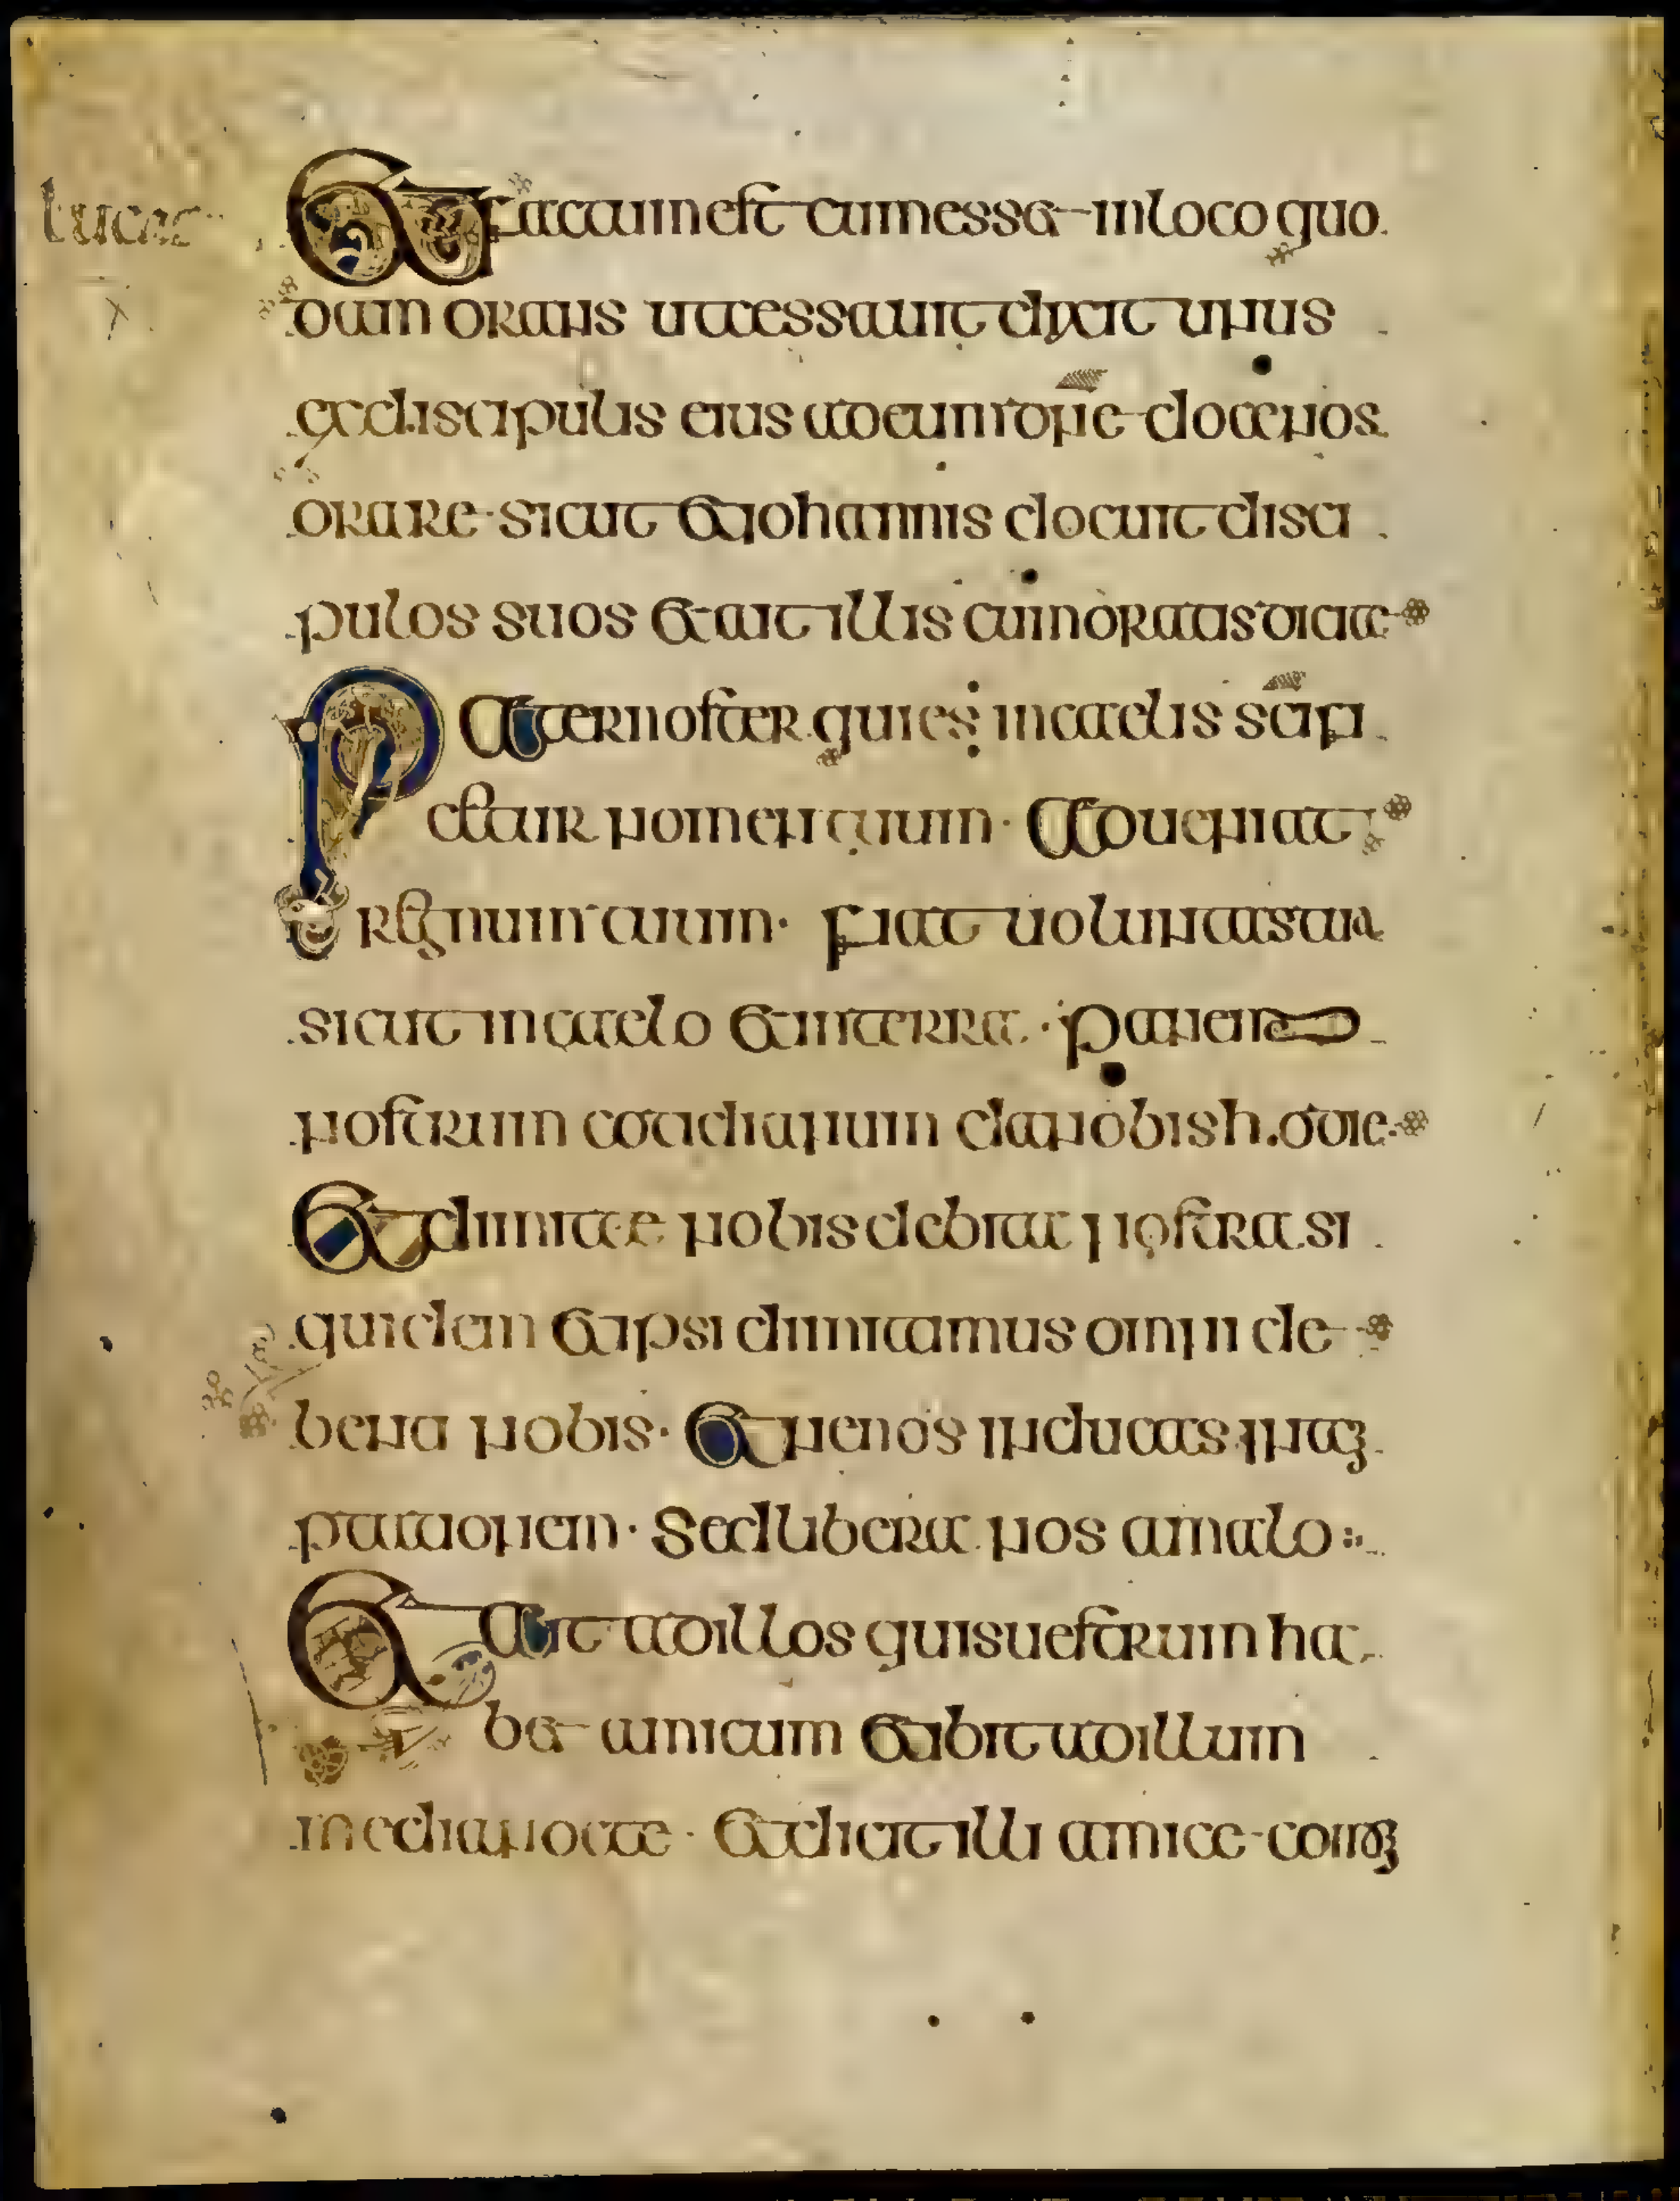 Lucas
X
Et factum est cum esset in loco quo
dam orans ut cessavit dixit unus
ex discipulis eius ad eum dñe doce nos
orare sicut et iohannis docuit disci
pulos suos et ait illis cum oratis dicite
Pater noster qui es in caelis scifi
cetur nomen tuum · Adueniat
regnum tuum · fiat uoluntas tua
sicut in caelo et in terra · Panem
nostrum cotidianum da nobis hodie
Et dimitte nobis debita nostra si
quidem et ipsi dimittamus omni de
benti nobis · Et ne nos inducas in tem
ptationem · Sed libera nos a malo
Et ait ad illos quis uestrum ha
bet amicum et ibit ad illum
media nocte · et dicit illi amice com